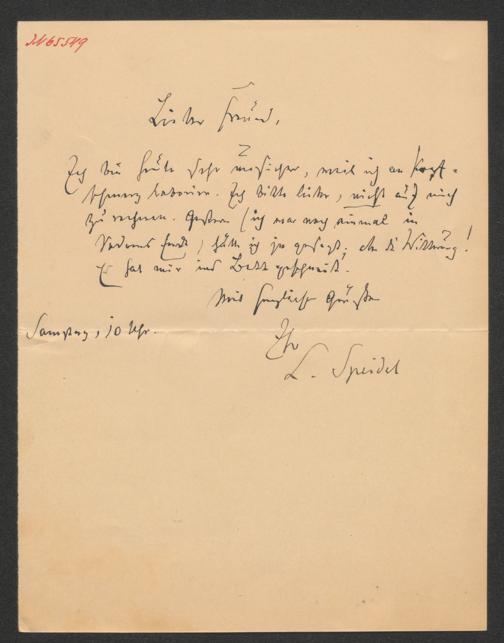 Lieber Freund,
Ich bin heute sehr unsicher, weil ich an Kopf-
schmerz laborire. Ich bitte lieber, nicht auf mich
zu rechnen. Gestern (ich war noch einmal in
Ende) hätte ich ja gesagt; aber die Witterung!
Es hat mir ins Bett geschneit.
Mit herzlichen Grüßen
Samstag, 10 Uhr.
Ihr
L. Speidel